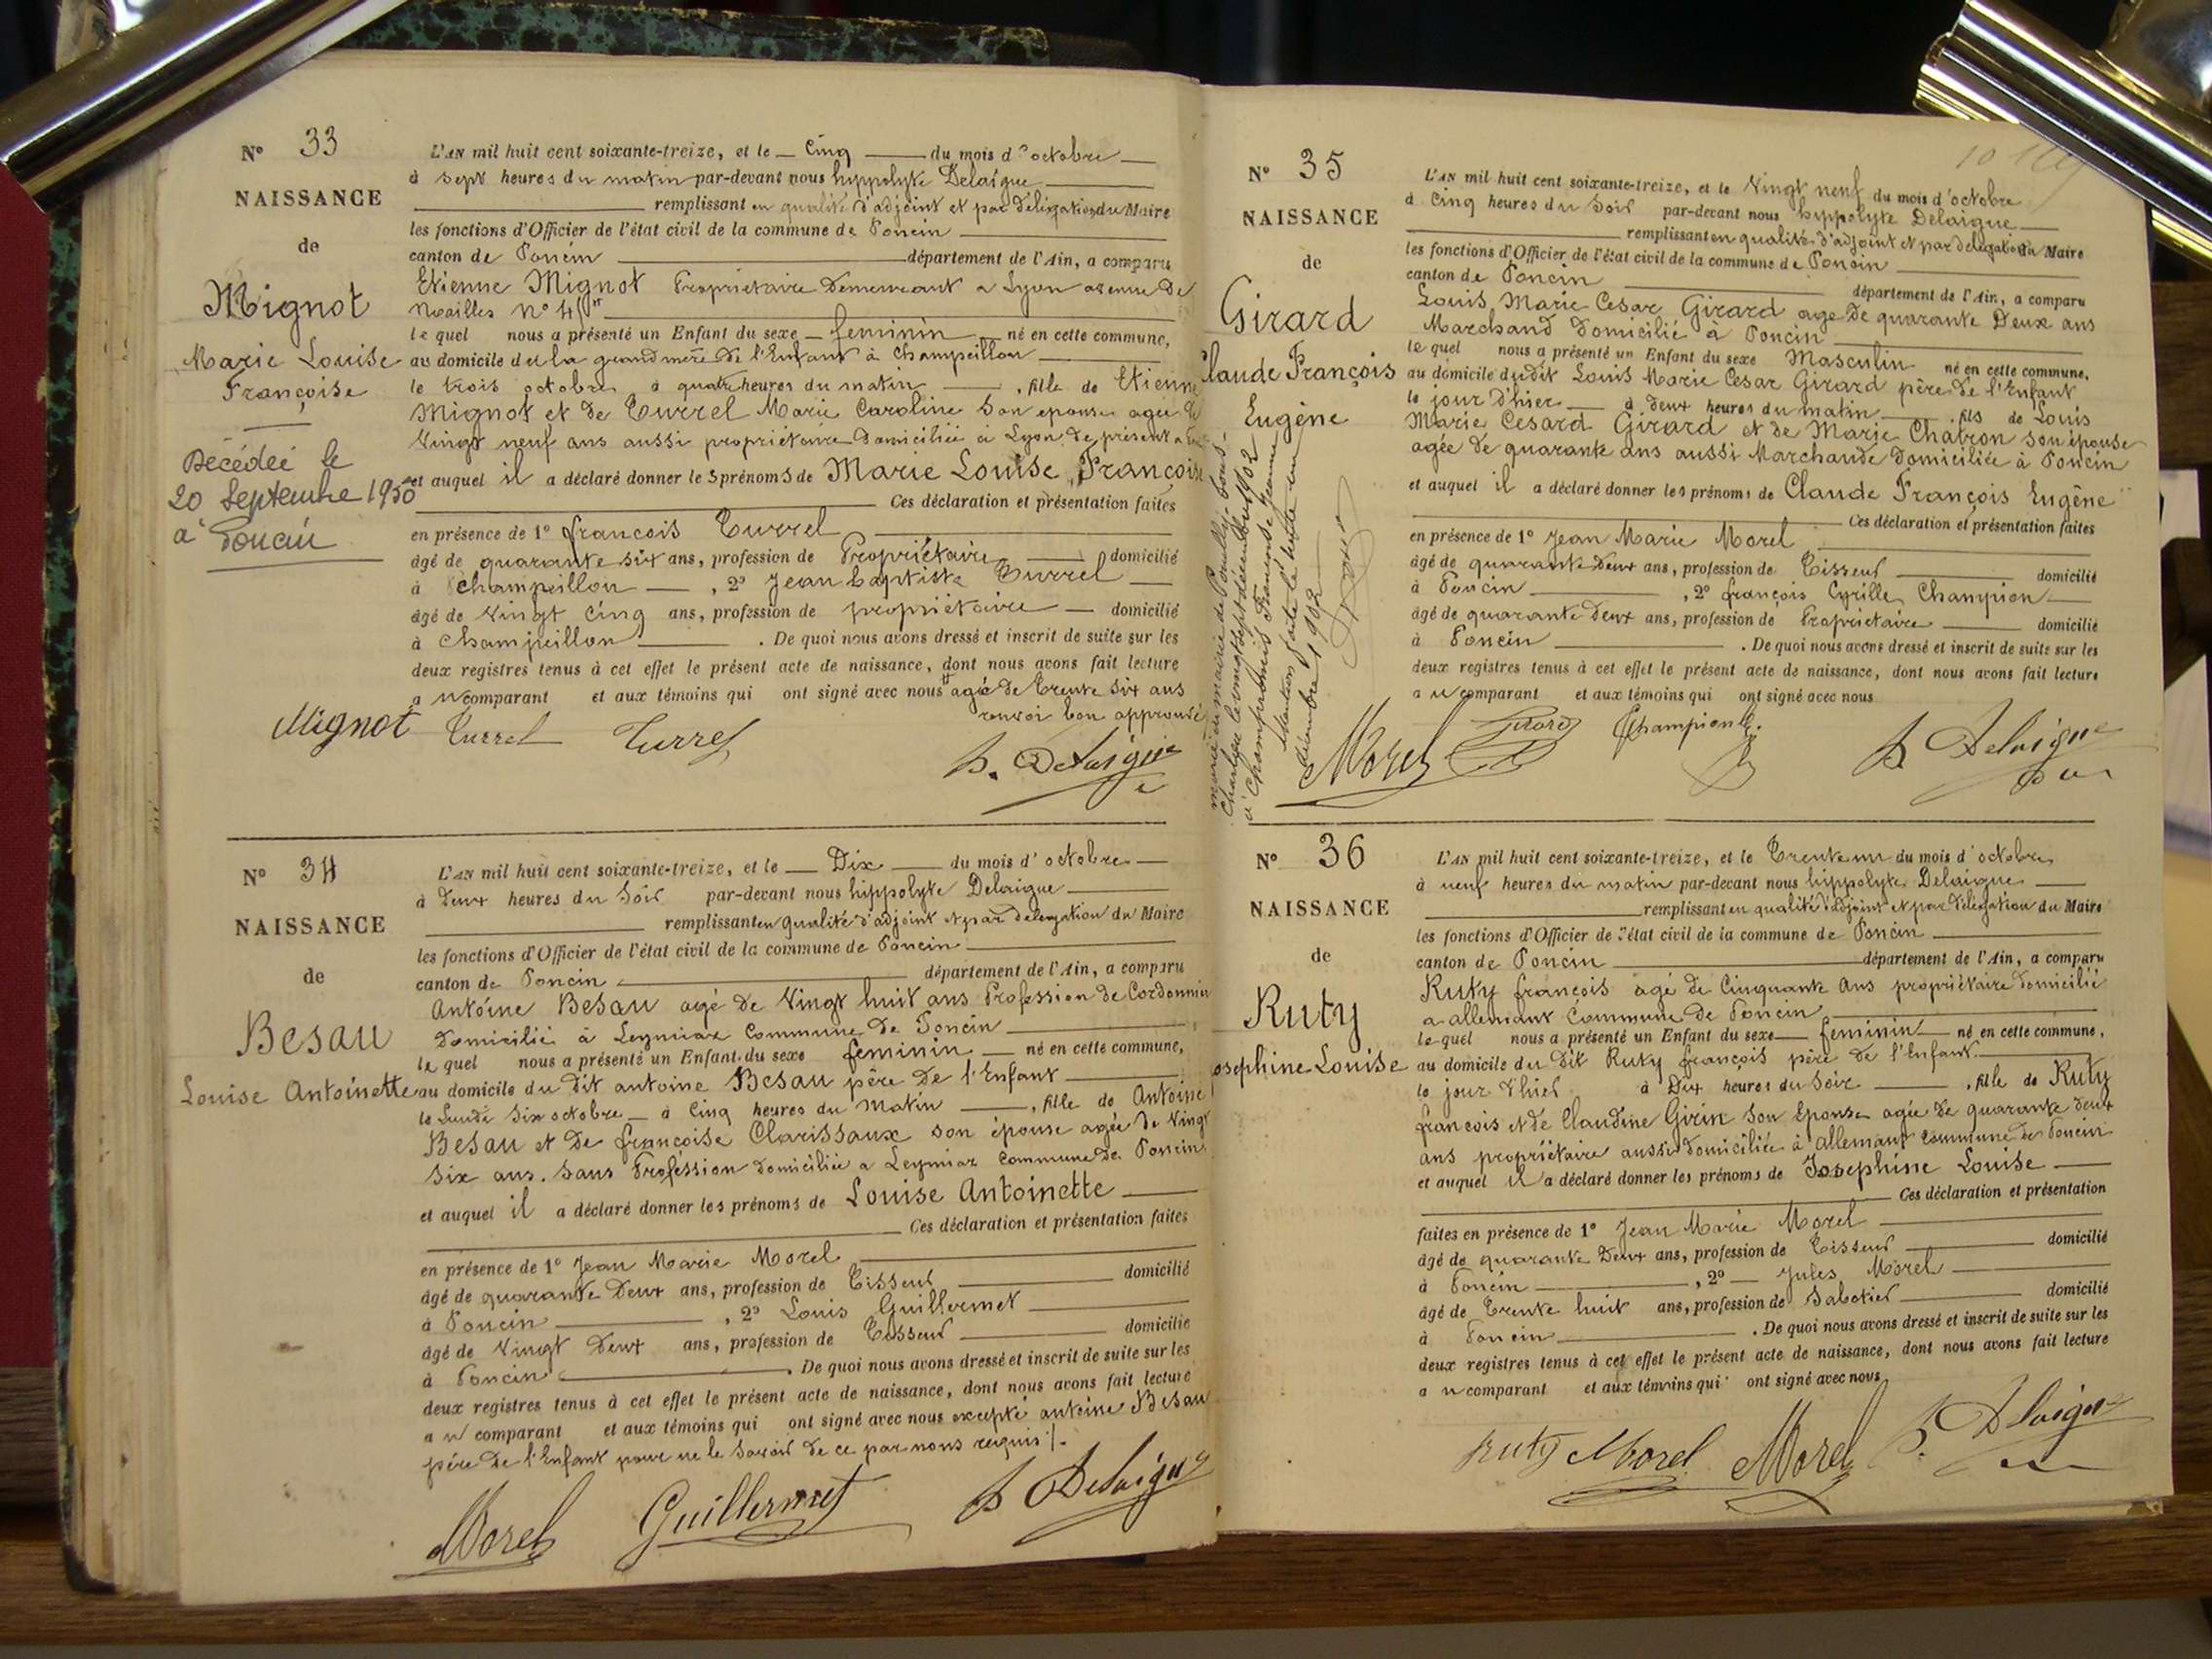 N° 33
NAISSANCE
de
Mignot
Marie Louise
Françoise
Décédée le
20 Septembre 1950
à Poncin
L'AN mil huit cent soixante-treize, et le cinq du mois d'octobre
à sept heures du matin par-devant nous hippolyte Delaigue
remplissant en qualité d'adjoint et par délégation du Maire
les fonctions d'Officier de l'état civil de la commune de Poncin
canton de Poncin département de l'Ain, a comparu
Etienne Mignot Propriétaire Demeurant a Lyon avenue de
Noailles n°
le quel nous a présenté un Enfant du sexe feminin né en cette commune,
au domicile de la grand mère de l'Enfant à Champeillon
le trois octobre à quatre heures du matin, fille de Etienne
Mignot et de Turrel Marie Caroline Son epouse agée de
Vingt neuf ans aussi propriétaire Domiciliée à Lyon de présent a
et auquel il a déclaré donner les prénoms de Marie Louise Françoise
Ces déclaration et présentation faites
en présence de 1° françois Turrel
âgé de quarante six ans, profession de Propriétaire domicilié
à Champeillon, 2° Jean baptiste Turrel
âgé de Vingt cinq ans, profession de propriétaire domicilié
à Champeillon. De quoi nous avons dressé et inscrit de suite sur les
deux registres tenus à cet effet le présent acte de naissance, dont nous avons fait lecture
au comparant et aux témoins qui ont signé avec nous agé de Trente six ans
renvoi bon approuvé
Mignot Turrel Turrel
h. Delaigue
N° 34
NAISSANCE
de
Besau
Louise Antoinette
L'AN mil huit cent soixante-treize, et le Dix du mois d'octobre
à deux heures du Soir par-devant nous hippolyte Delaigue
remplissant en qualité d'adjoint et par délégation du Maire
les fonctions d'Officier de l'état civil de la commune de Poncin
canton de Poncin département de l'Ain, a comparu
Antoine Besau agé de Vingt huit ans Profession de Cordonnier
Domicilié à Leymiaz Commune de Poncin
le quel nous a présenté un Enfant du sexe feminin né en cette commune,
au domicile du dit antoine Besau père de l'Enfant
le Lundi Six octobre à Cinq heures du Matin, fille de Antoine
Besau et de françoise Clarissaux son épouse agée de Vingt
Six ans. Sans Profession domiciliée a Leymiaz Commune de Poncin
et auquel il a déclaré donner les prénoms de Louise Antoinette
Ces déclaration et présentation faites
en présence de 1° Jean Marie Morel
âgé de quarante Deux ans, profession de Tisseur domicilié
à Poncin, 2° Louis Guillermet
âgé de Vingt Deux ans, profession de Tisseur domicilié
à Poncin. De quoi nous avons dressé et inscrit de suite sur les
deux registres tenus à cet effet le présent acte de naissance, dont nous avons fait lecture
au comparant et aux témoins qui ont signé avec nous excepté antoine Besau
père de l'Enfant pour ne le Savoir de ce par nous requis
Morel Guillermet h Delaigue
N° 35
NAISSANCE
de
Girard
Claude François
Eugène
marié en mairie de Pouilly-sous-
Charlieu le vingt sept décembre 1902
à Champabouis Francoise Jeanne
Mention faite le trente un
décembre 1902
L'AN mil huit cent soixante-treize, et le Vingt neuf du mois d'octobre
à Cinq heures du Soir par-devant nous hippolyte Delaigue
remplissant en qualité d'adjoint et par délégation du Maire
les fonctions d'Officier de l'état civil de la commune de Poncin
canton de Poncin département de l'Ain, a comparu
Louis Marie Cesar Girard agé de quarante Deux ans
Marchand Domicilié à Poncin
le quel nous a présenté un Enfant du sexe Masculin né en cette commune,
au domicile du dit Louis Marie Cesar Girard père de l'Enfant
le jour d'hier à deux heures du matin, fils de Louis
Marie Cesard Girard et de Marie Chatron son épouse
agée de quarante ans aussi Marchande domiciliée à Poncin
et auquel il a déclaré donner les prénoms de Claude François Eugène
Ces déclaration et présentation faites
en présence de 1° Jean Marie Morel
âgé de quarante deux ans, profession de Tisseur domicilié
à Poncin, 2° françois Cyrille Champion
âgé de quarante deux ans, profession de Propriétaire domicilié
à Poncin. De quoi nous avons dressé et inscrit de suite sur les
deux registres tenus à cet effet le présent acte de naissance, dont nous avons fait lecture
au comparant et aux témoins qui ont signé avec nous
Morel Girard Champion h Delaigue
N° 36
NAISSANCE
de
Ruty
Josephine Louise
L'AN mil huit cent soixante-treize, et le Trente un du mois d'octobre
à neuf heures du matin par-devant nous hippolyte Delaigue
remplissant en qualité d'adjoint et par délégation du Maire
les fonctions d'Officier de l'état civil de la commune de Poncin
canton de Poncin département de l'Ain, a comparu
Ruty françois agé de Cinquante Ans propriétaire domicilié
a allemant Commune de Poncin
le quel nous a présenté un Enfant du sexe feminin né en cette commune,
au domicile du dit Ruty françois père de l'Enfant
le jour d'hier à Dix heures du Soir, fille de Ruty
françois et de Claudine Girin Son Epouse agée de quarante deux
ans propriétaire aussi domiciliée à allemant commune de Poncin
et auquel il a déclaré donner les prénoms de Josephine Louise
Ces déclaration et présentation
faites en présence de 1° Jean Marie Morel
âgé de quarante Deux ans, profession de Tisseur domicilié
à Poncin, 2° Jules Morel
âgé de Trente huit ans, profession de Sabotier domicilié
à Poncin. De quoi nous avons dressé et inscrit de suite sur les
deux registres tenus à cet effet le présent acte de naissance, dont nous avons fait lecture
au comparant et aux témoins qui ont signé avec nous
Ruty Morel Morel h. Delaigue